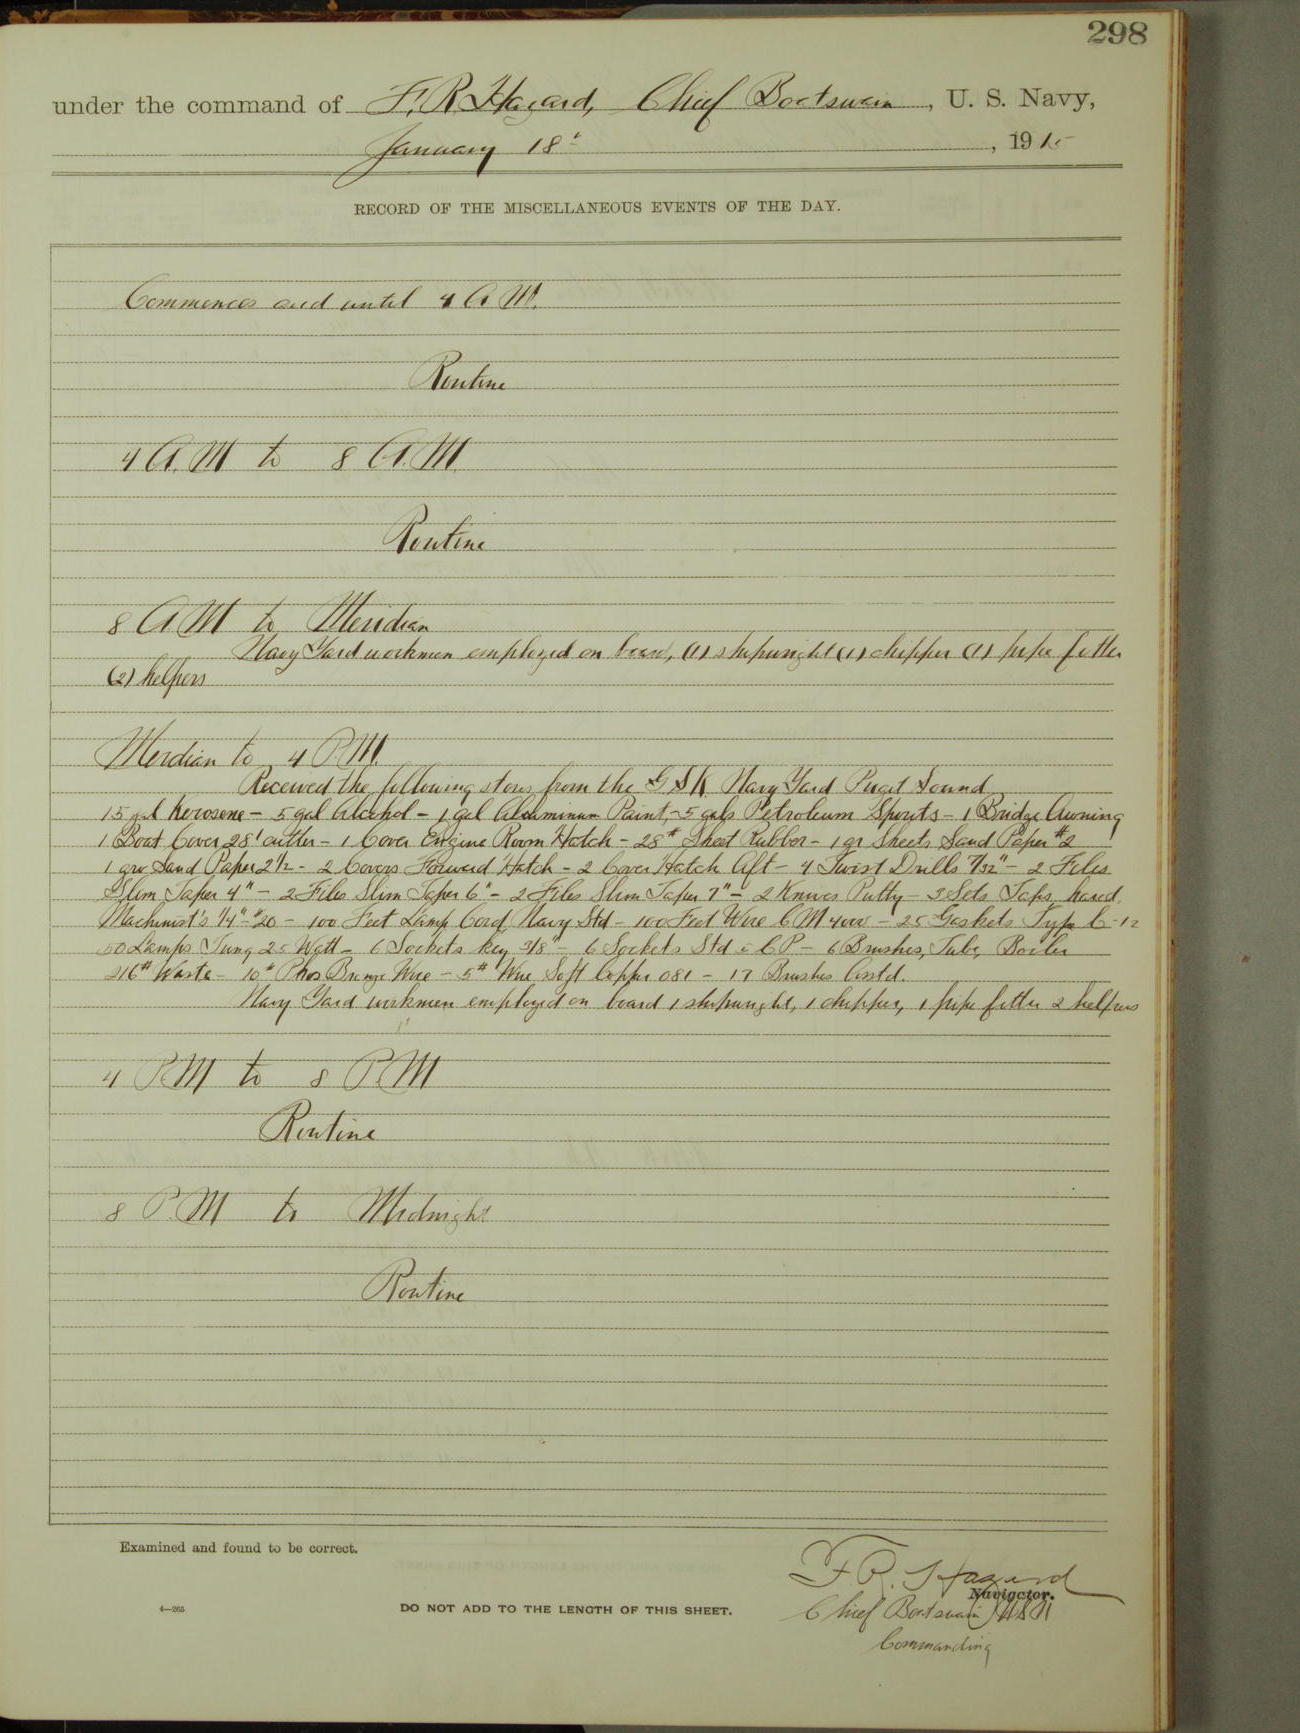 298
under the command of F. R. Hazard, Chief Boatswain, U. S. Navy,
January 18", 1915
RECORD OF THE MISCELLANEOUS EVENTS OF THE DAY.
Commences and until 4 A.M.
Routine
4 A.M to 8 A.M.
Routine
8 A.M to Meridian
Navy Yard workmen employed on board, (1) shipwright (1) chipper (1) pipe fitter
(2) helpers
Merdian to 4 P.M.
Received the following stores from the G S K Navy Yard Puget Sound
15 gal Kerosene - 5 gal Alcohol - 1 gal Aluminum Paint, - 5 gals Petroleum Spirits - 1 Bridge Awning
1 Boat Cover 28' cutter - 1 Cover Engine Room Hatch - 28# Sheet Rubber - 1 gr Sheets Sand Paper #2
1 gro Sand Paper 2 1/2 - 2 Covers Forward Hatch - 2 Cover Hatch Aft - 4 Twist Drills 7/32" - 2 Files
Slim Taper 4" - 2 Files Slim Taper 6" - 2 Files Slim Taper 7" - 2 Knives Putty - 3 Sets Taps, hand,
Machinist's 1/4"-#20 - 100 Feet Lamp Cord Navy Std - 100 Feet Wire C M 4000 - 25 Gaskets Type C-12
50 Lamps Tung 25 Watt - 6 Sockets key 3/8" - 6 Sockets Std C P - 6 Brushes, Tube, Boiler
216# Waste - 10# Phos Bronze Wire - 5# Wire Soft Copper 081 - 17 Brushes Asstd.
Navy Yard workmen employed on board 1 shipwright, 1 chipper, 1 pipe fitter 2 helpers
4 P.M to 8 P.M
Routine
8 P.M to Midnight
Routine
Examined and found to be correct.
F R. Hazard
Navigator.
Chief Boatswain U S N
Commanding
4—265
DO NOT ADD TO THE LENGTH OF THIS SHEET.